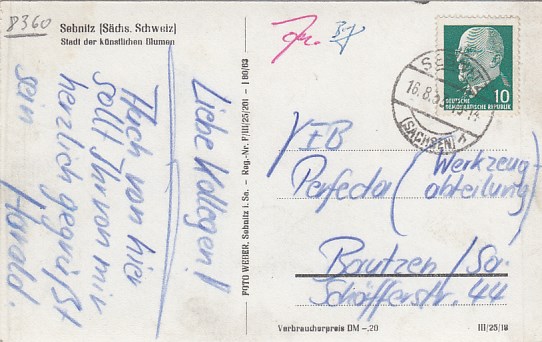 8360
Sebnitz [Sächs. Schweiz]
Stadt der künstlichen Blumen
Liebe Kollegen!
Auch von hier
sollt Ihr von mir
herzlich gegrüßt
sein
Harald.
FOTO WEBER, Sebnitz i. Sa. - Reg.-Nr. F/III/25/201 - I 90/63
10
DEUTSCHE
DEMOKRATISCHE REPUBLIK
16.8.
(SACHSEN) 1
VEB
Perfecta (Werkzeug-
abteilung)
Bautzen/Sa.
Schäfferstr. 44
Verbraucherpreis DM -,20
III/25/18